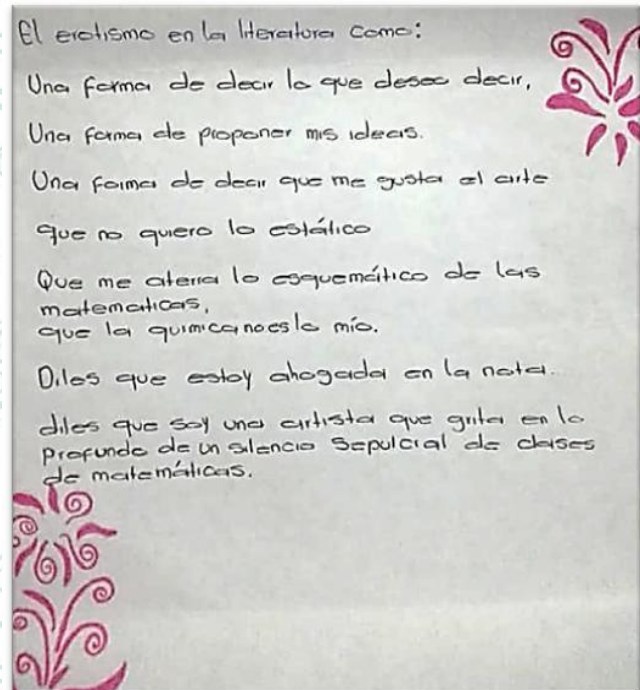 El erotismo en la literatura como:
Una forma de decir lo que deseo decir,
Una forma de proponer mis ideas.
Una forma de decir que me gusta el arte
que no quiero lo estático
Que me aterra lo esquemático de las
matematicas,
que la quimica no es lo mío.
Diles que estoy ahogada en la nata.
diles que soy una artista que grita en lo
profundo de un silencio sepulcral de clases
de matemáticas.